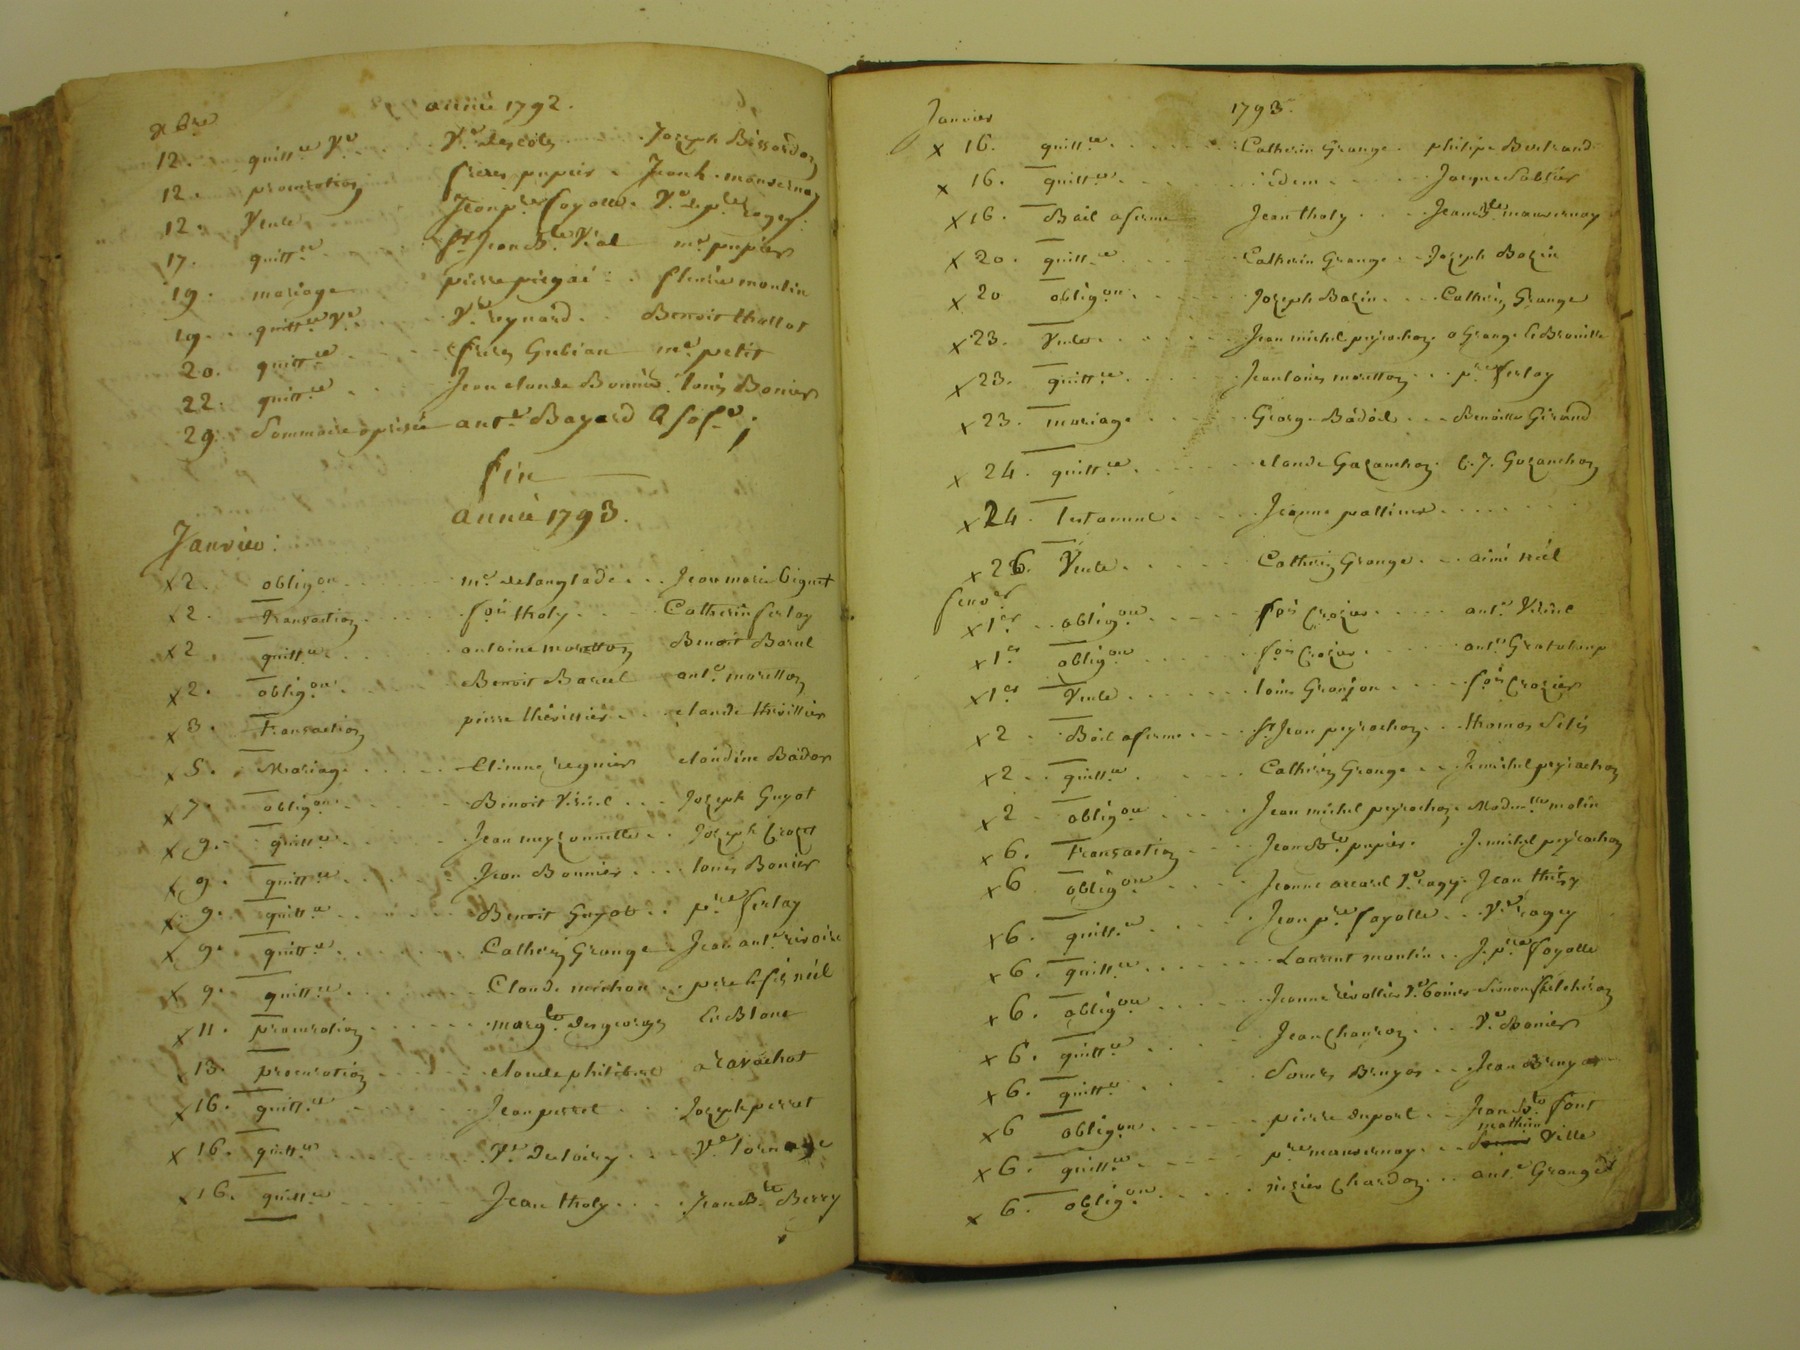 année 1792.
xbre
12. quitt.ce Ve. Ve Descotes Joseph Bissardon
12. procuration freres pupier Jean b. manvernay
12. Vente Jean pre fayolle. Ve de pre ragey
17. quitt.ce Sr Jean Bte Vial me pupier
19. mariage pierre piegai fleurie moulin
19. quitt.ce Ve. Ve reynard Benoit thollot
20. quitt.ce freres Gubian me petit
22. quitt.ce Jean claude Bonnier. louis Bonier
29. Sommaire aprisie ant.e Bayard
fin
année 1793.
Janvier:
x 2. oblig.on me delanglade Jean marie Gignet
x 2. Transaction fois tholy Catherin ferlay
x 2. quitt.ce antoine moretton Benoit Barel
x 2. oblig.on Benoit Barel ant.e moretton
x 3. Transaction pierre thévillier claude thévillier
x 5. Mariage Etienne regnier claudine Bador
x 7. oblig.on Benoit Viriel Joseph Guyot
x 9. quitt.ce Jean meysonnette Joseph Crozet
x 9. quitt.ce Jean Bonnier louis Bonier
x 9. quitt.ce Benoit Guyot pre ferlay
x 9. quitt.ce Catherin Grange Jean ant.e rivoire
x 9. quitt.ce Claude michon pere & fis réel
x 11. procuration marg.te Desgeorges En Blanc
13. procuration claude philibert a ravachot
x 16. quitt.ce Jean perret Joseph perret
x 16. quitt.ce Ve Ve lornage
x 16. quitt.ce Jean tholy Jean Bte Berry
1793.
Janvier
x 16. quitt.ce Catherin Grange philipe Bertrand
x 16. quitt.ce idem Jacque Sablier
x 16. Bail a ferme Jean tholy Jean Bte manvernay
x 20. quitt.ce Catherin Grange Joseph Bazin
x 20 oblig.on Joseph Bazin Catherin Grange
x 23. Vente Jean michel peyrachon a Grange & Brouille
x 23. quitt.ce Jean louis moretton pre ferlay
x 23. mariage George Badoil Benoitte Giraud
x 24. quitt.ce claude Gazanchon C. J. Gazanchon
x 24. Testament Jeanne pattieux
x 26. Vente Catherin Grange aimé réel
fevrer
x 1er oblig.on fois Crozier ant.e Viricel
x 1er oblig.on fois Crozier ant.e Grataloup
x 1er Vente louis Granjon fois Crozier
x 2 Bail a ferme Sr Jean peyrachon thomas
x 2. quitt.ce Catherin Grange J. michel peyrachon
x 2 oblig.on Jean michel peyrachon Madm.lle molin
x 6. Transaction Jean Bte pupier. J. michel peyrachon
x 6 oblig.on Jeanne accarel Ve ragey Jean
x 6. quitt.ce Jean pre fayolle Ve ragey
x 6. quitt.ce Laurent moulin J. pre fayolle
x 6. oblig.on Jeanne révollier Ve bonier Simon
x 6. quitt.ce Jean Chanron Ve Bonier
x 6. quitt.ce Bruyas Jean Bruyas
x 6 oblig.on pierre duport Jean Bte font
x 6. quitt.ce pre manvernay mathieu Ville
x 6. oblig.on nizier Chardon ant.e Grange